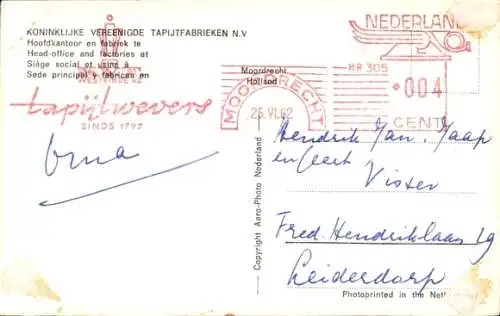 KONINKLIJKE VEREENIGDE TAPIJTFABRIEKEN N.V
Hoofdkantoor en fabriek te
Head-office and factories at
Siège social et usine à
Sede principal y fabricas en
WESTWINDE 42
tapijtwevers
SINDS 1797
Oma
Moordrecht
Holland
MOORDRECHT
26.VI.62
NEDERLAND
HR 305
004
CENT
Copyright Aero-Photo Nederland
Hendrik Jan, Jaap
en Geert
Visser
Fred. Hendriklaan 19
Leiderdorp
Photoprinted in the Net